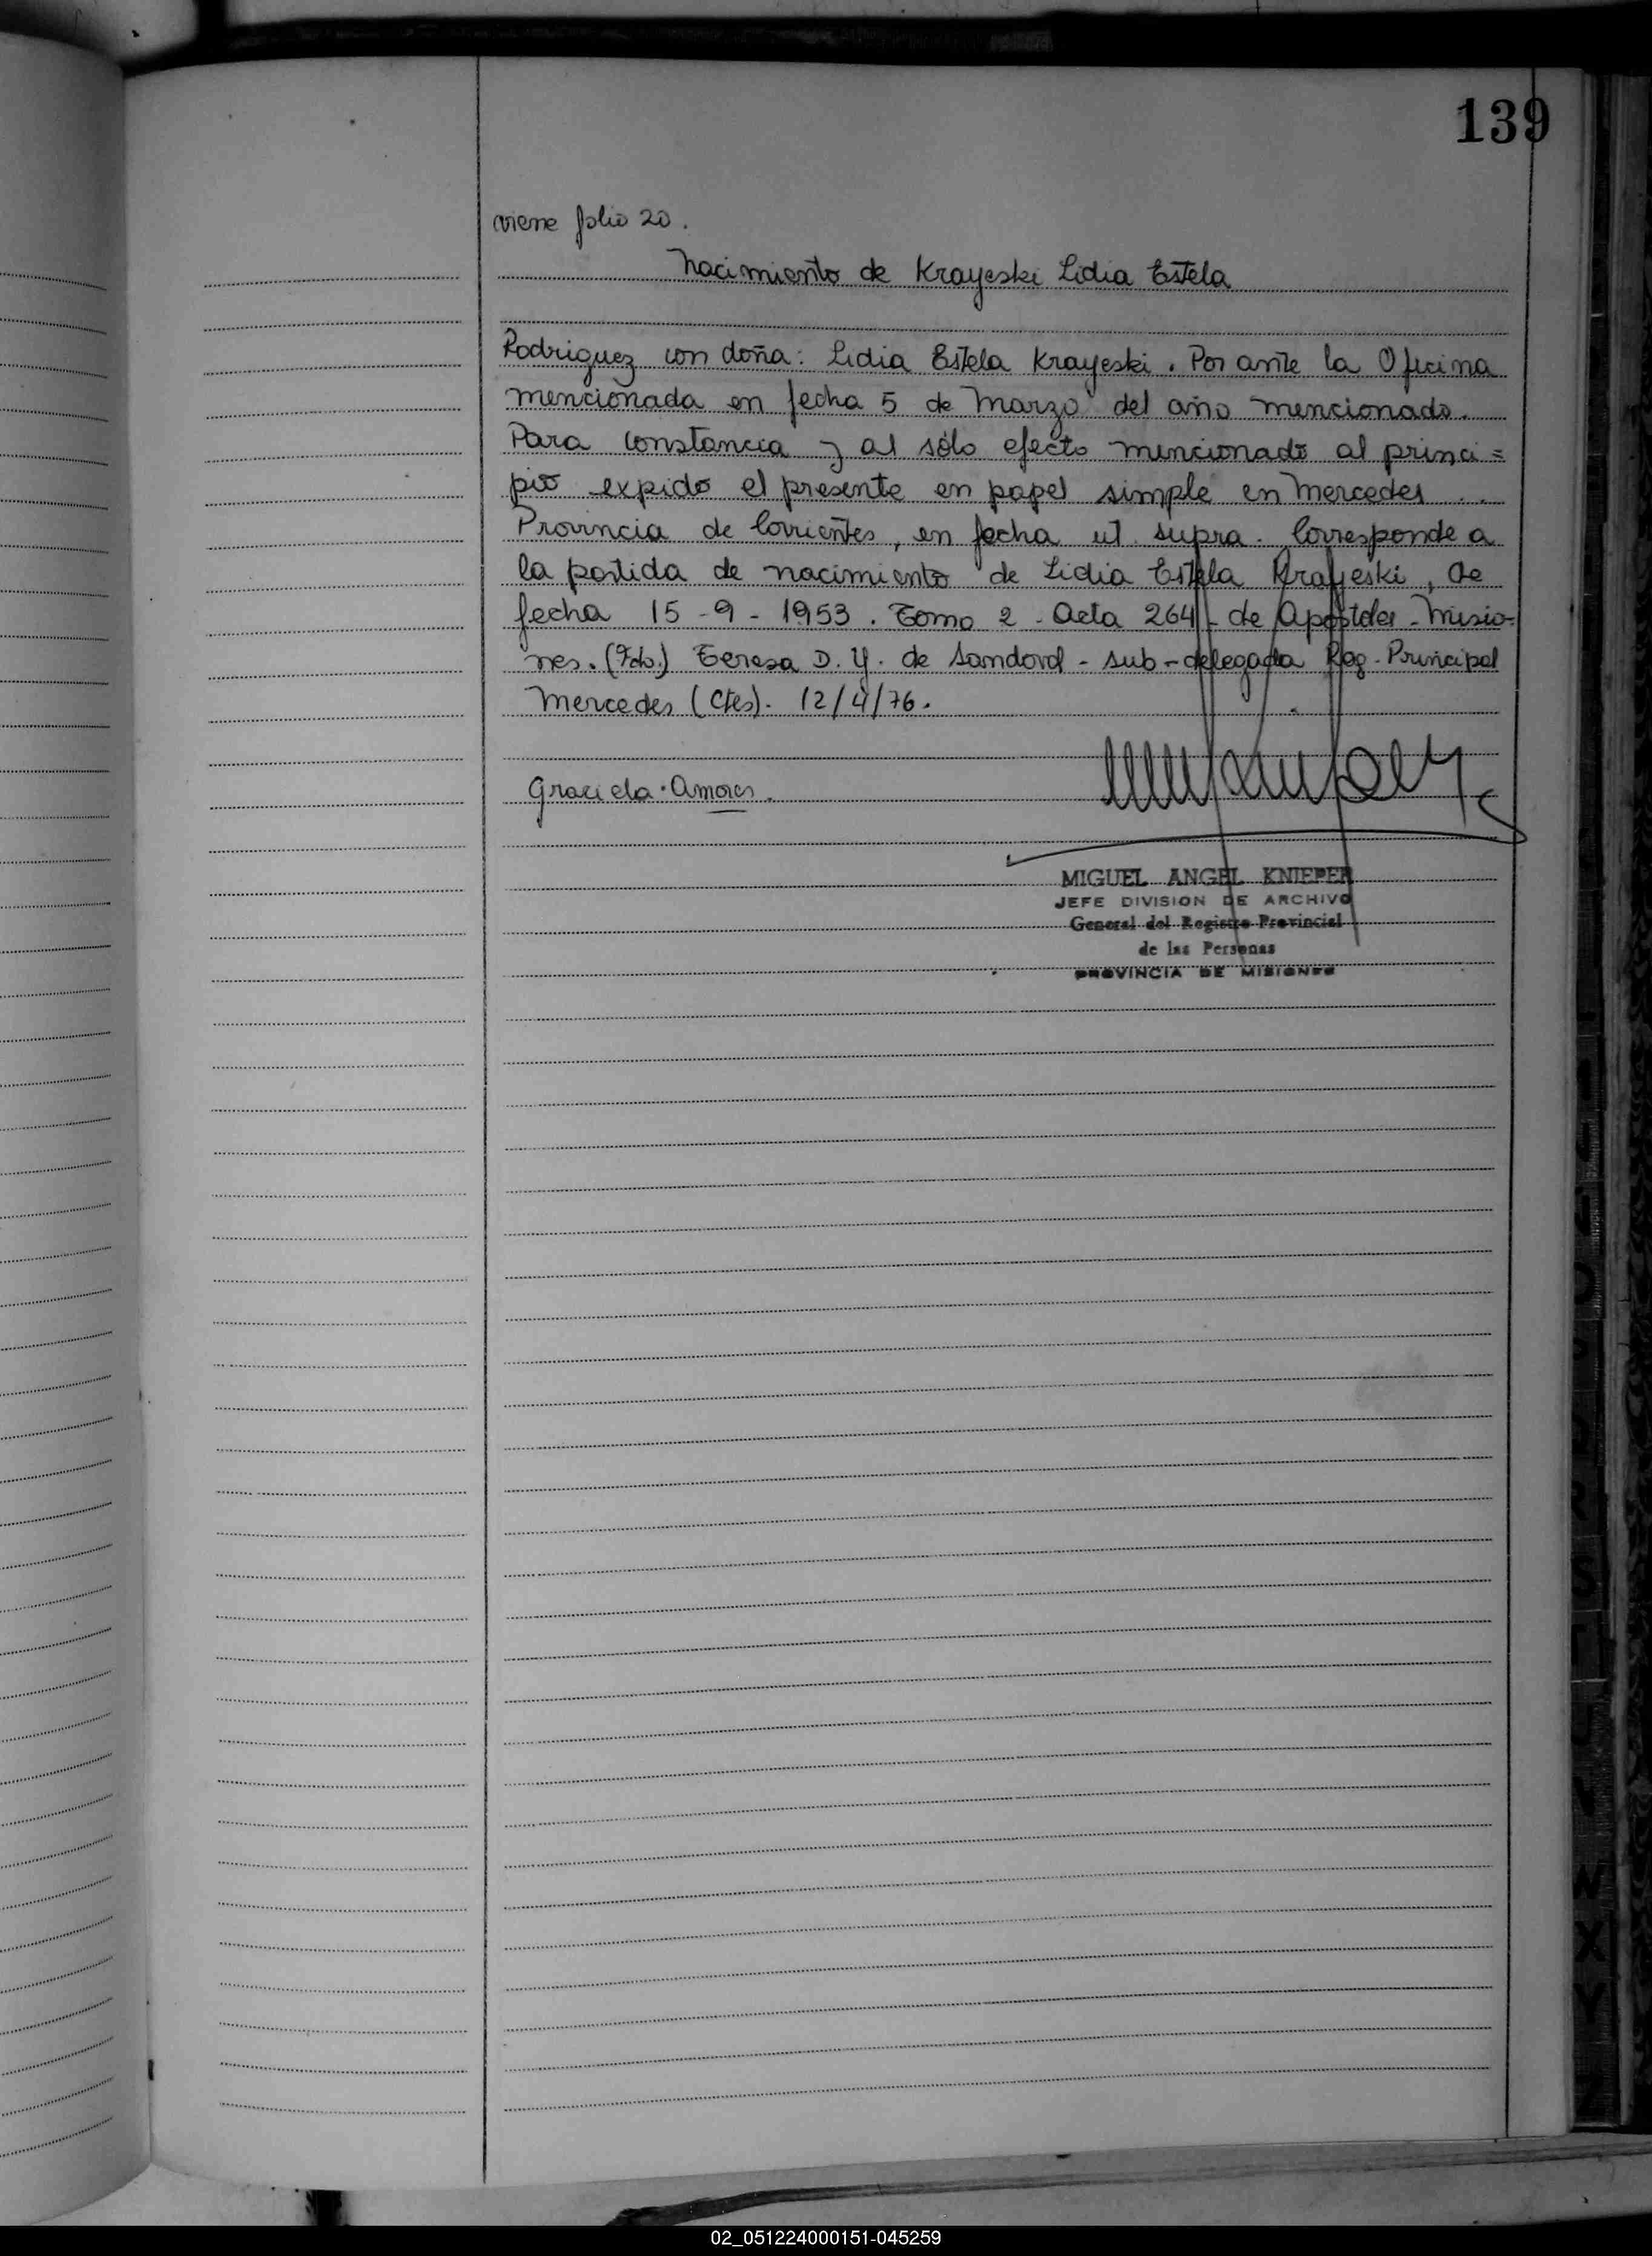 139
viene folio 20.
Nacimiento de Krayeski Lidia Estela
Rodriguez con doña: Lidia Estela Krayeski. Por ante la Oficina
mencionada en fecha 5 de Marzo del año mencionado.
Para constancia y al sólo efecto mencionado al princi=
pio expido el presente en papel simple en Mercedes ..
Provincia de Corrientes, en fecha ut. supra. Corresponde a
la partida de nacimiento de Lidia Estela Krayeski, de
fecha 15-9-1953. Tomo 2 - Acta 264 - de Apostoles - Misio-
nes. (Fdo.) Teresa D. Y. de Sandoval - sub-delegada Reg. Principal
Mercedes (Ctes). 12/4/76.
Graciela Amores.
MIGUEL ANGEL KNIEPER
JEFE DIVISION DE ARCHIVO
General del Registro Provincial
de las Personas
PROVINCIA DE MISIONES
02_051224000151-045259